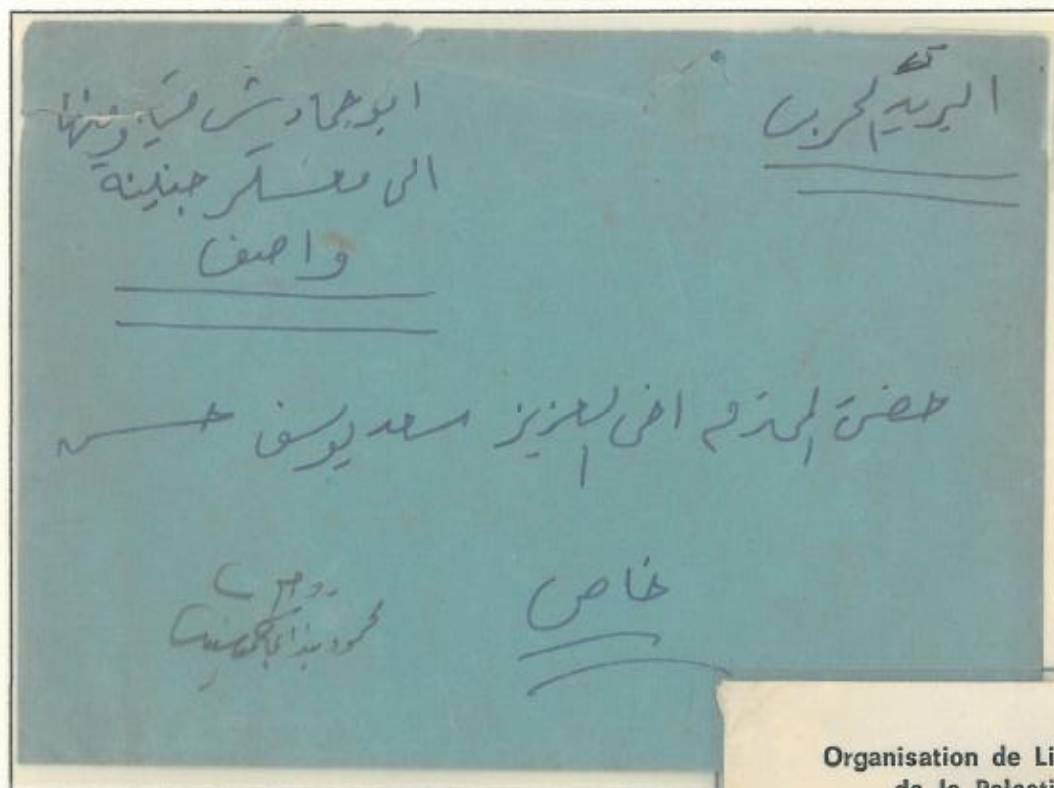 البريد الحربي
ابو جهاد ش ومنها
الى معسكر جنينة
واصف
حضرة المحترم اخي العزيز سعد يوسف حسن
خاص
محمود
Organisation de Li
de la Palesti